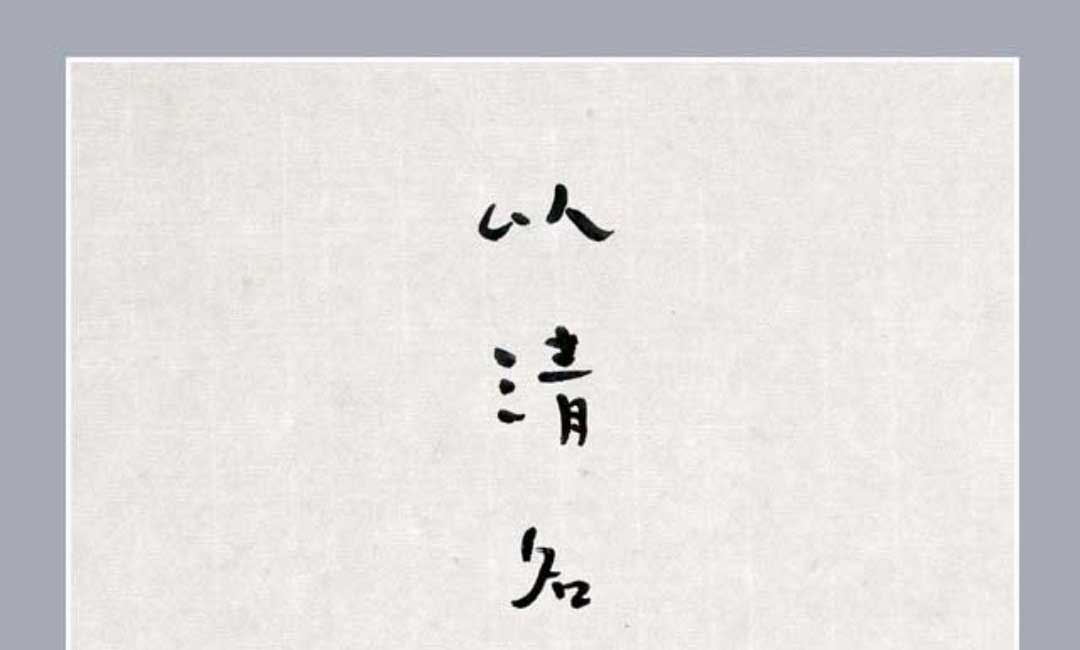 以清名